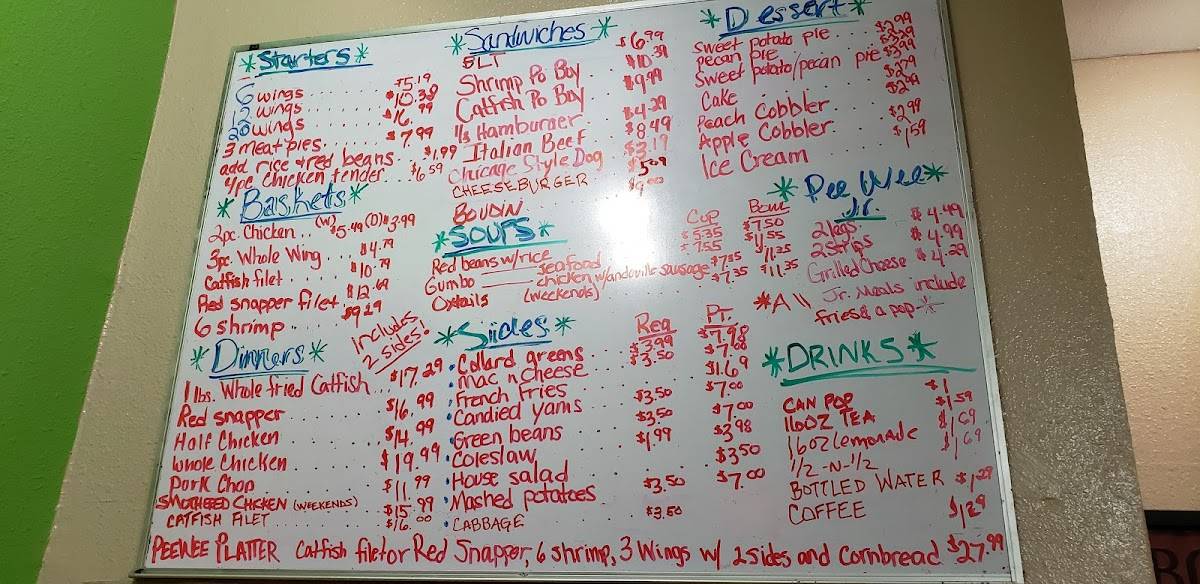 *Starters*
6 wings ........ $5.19
12 wings ....... $10.38
20 wings ....... $16.99
3 meat pies ..... $7.99
add rice & red beans .. $1.99
4pc chicken tender ... $6.59
*Baskets*
2pc. Chicken .. (W) $5.49 (D) $3.99
3pc. Whole Wing ... $4.79
Catfish filet ...... $10.79
Red snapper filet . $12.49
6 shrimp .... $9.29
Includes
2 sides!
*Dinners*
1 lbs. Whole fried Catfish ... $17.29
Red snapper ....... $16.99
Half Chicken ...... $14.99
Whole Chicken ..... $19.99
Pork Chop ........ $11.99
SMOTHERED CHICKEN (WEEKENDS) $15.99
CATFISH FILET ........ $16.00
*Sandwiches*
BLT ........ $6.99
Shrimp Po Boy .. $10.39
Catfish Po Boy .. $9.99
1/3 Hamburger .. $4.39
Italian Beef ... $8.49
Chicago Style Dog $3.19
CHEESEBURGER $5.09
BOUDIN $9.00
*SOUPS* Cup Bowl
Red beans w/rice $5.35 $7.50
Gumbo seafood $7.55 $11.55
chicken w/andouille sausage $7.35 $11.35
Oxtails (weekends) $7.35 $11.35
*Sides* Reg Pt.
Collard greens .. $3.99 $7.98
Mac n cheese .. $3.50 $7.00
French fries $1.69
Candied yams $3.50 $7.00
Green beans $3.50 $7.00
Coleslaw $1.99 $3.98
House salad $3.50
Mashed potatoes $3.50 $7.00
CABBAGE $3.50
*Dessert*
Sweet potato pie .. $2.99
pecan pie ... $3.29
Sweet potato/pecan pie $3.99
Cake ........ $2.79
Peach Cobbler ..... $2.99
Apple Cobbler ..... $2.99
Ice Cream $1.59
*Pee Wee*
Jr.
2 legs $4.49
2 Strips $4.99
Grilled Cheese $4.29
*All Jr. Meals include
fries & a pop*
*DRINKS*
CAN POP $1
16OZ TEA $1.59
16oz Lemonade $1.69
1/2-N-1/2 $1.69
BOTTLED WATER $1.29
COFFEE $1.29
PEEWEE PLATTER Catfish filet or Red Snapper, 6 shrimp, 3 Wings w/ 2 sides and Cornbread $27.99